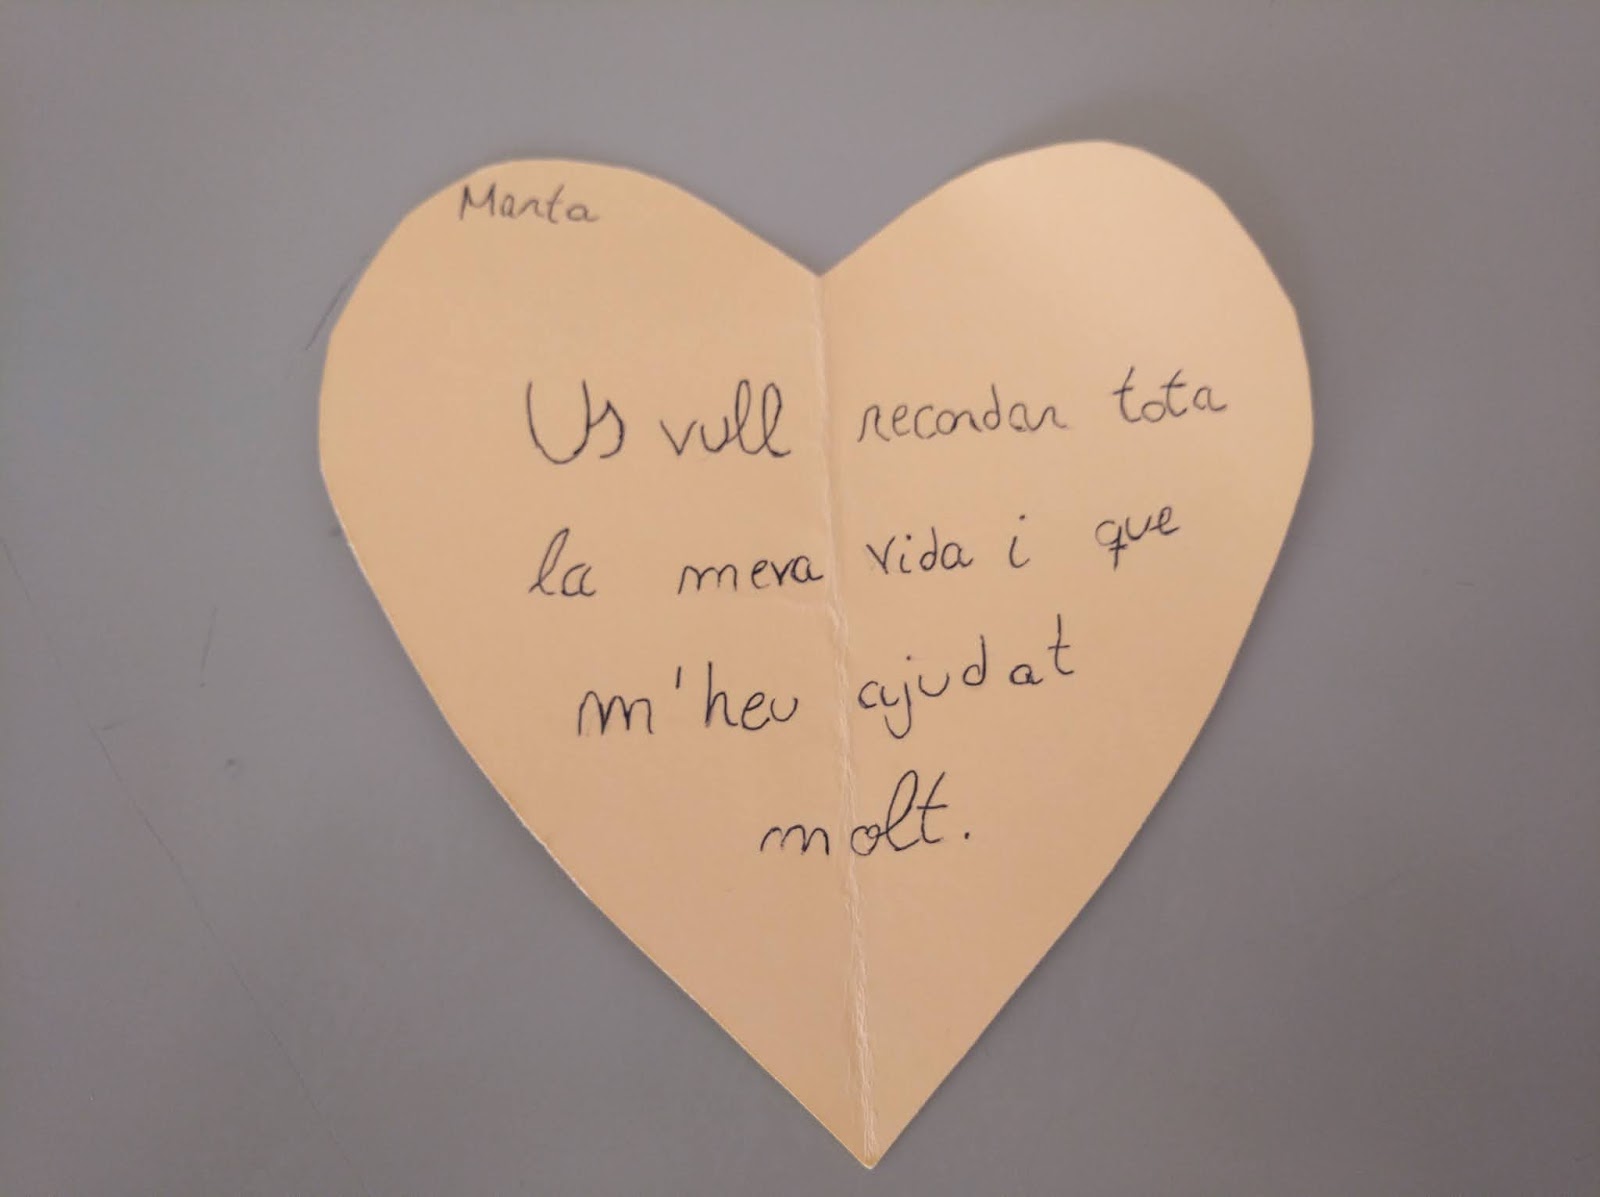 Marta
Us vull recordar tota
la meva vida i que
m'heu ajudat
molt.